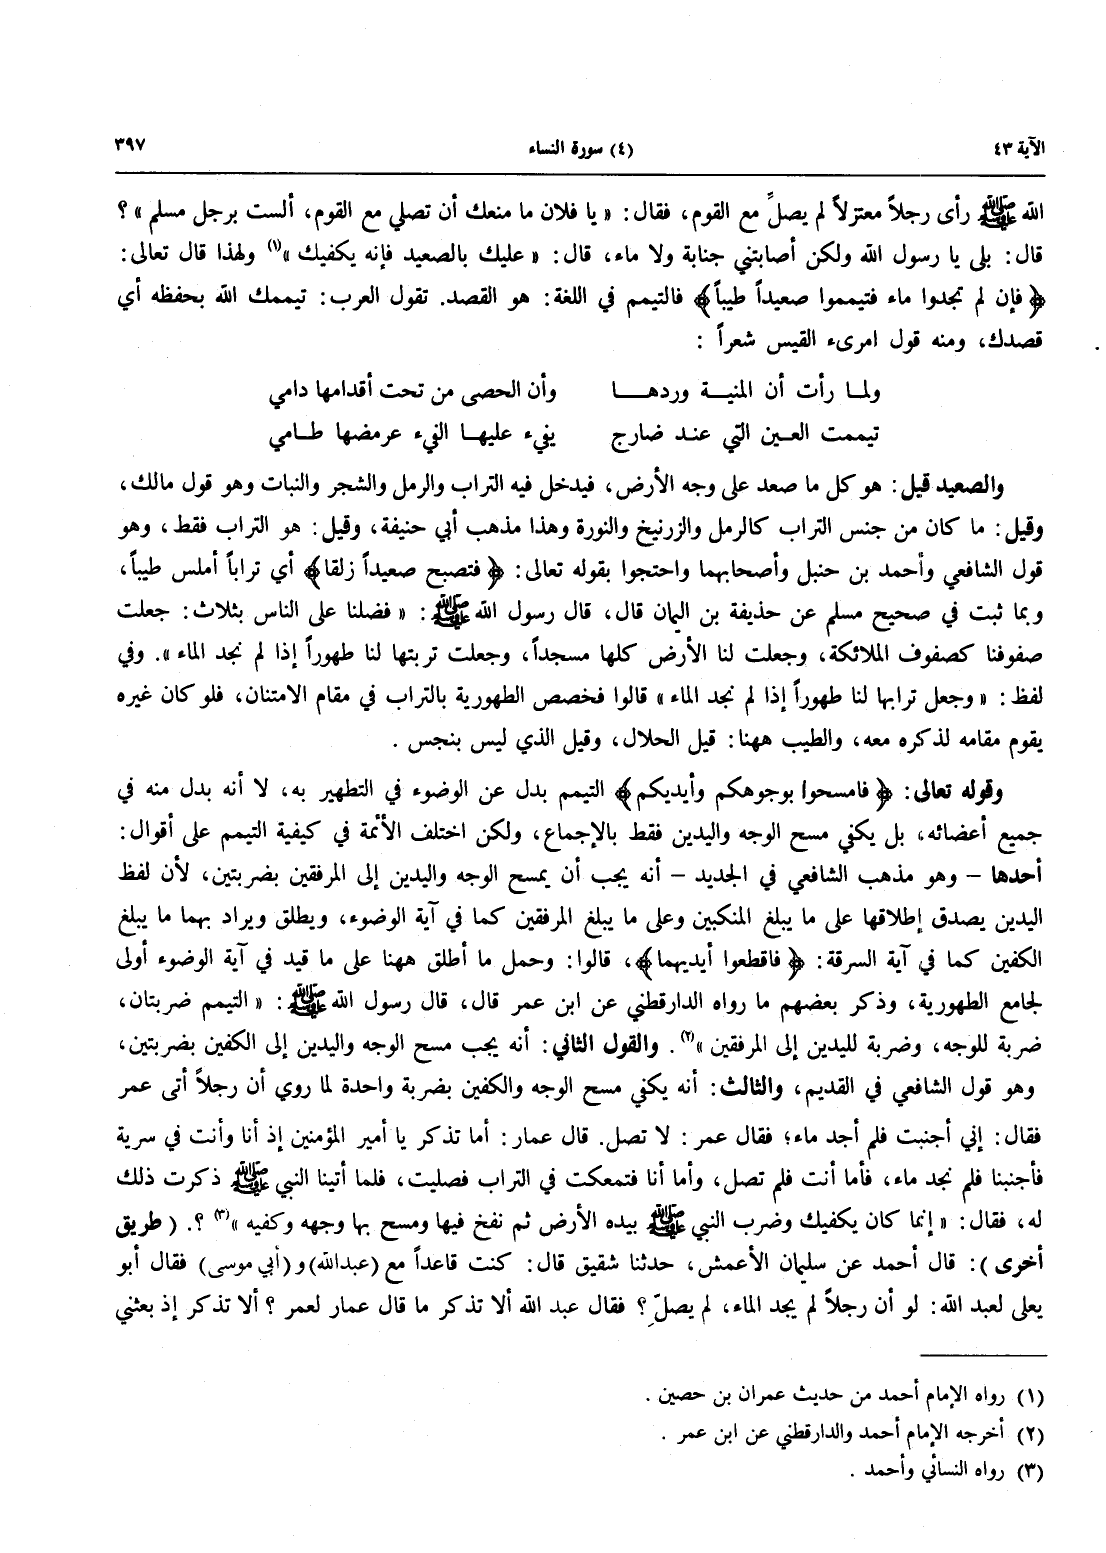 الآية ٤٣ (٤) سورة النساء ٣٩٧
الله ﷺ رأى رجلاً معتزلاً لم يصلِّ مع القوم، فقال: « يا فلان ما منعك أن تصلي مع القوم، ألست برجل مسلم » ؟
قال: بلى يا رسول الله ولكن أصابتني جنابة ولا ماء، قال: « عليك بالصعيد فإنه يكفيك »(١) ولهذا قال تعالى:
﴿ فإن لم تجدوا ماء فتيمموا صعيداً طيباً ﴾ فالتيمم في اللغة: هو القصد. تقول العرب: تيممك الله بحفظه أي
قصدك، ومنه قول امرىء القيس شعراً :
ولمـا رأت أن المنيـة وردهـا وأن الحصى من تحت أقدامها دامي
تيممت العـين التي عنـد ضارج يفيء عليهـا الفيء عرمضها طـامي
والصعيد قيل: هو كل ما صعد على وجه الأرض، فيدخل فيه التراب والرمل والشجر والنبات وهو قول مالك،
وقيل: ما كان من جنس التراب كالرمل والزرنيخ والنورة وهذا مذهب أبي حنيفة، وقيل: هو التراب فقط، وهو
قول الشافعي وأحمد بن حنبل وأصحابهما واحتجوا بقوله تعالى: ﴿ فتصبح صعيداً زلقا ﴾ أي تراباً أملس طيباً،
وبما ثبت في صحيح مسلم عن حذيفة بن اليمان قال، قال رسول الله ﷺ : « فضلنا على الناس بثلاث: جعلت
صفوفنا كصفوف الملائكة، وجعلت لنا الأرض كلها مسجداً، وجعلت تربتها لنا طهوراً إذا لم نجد الماء ». وفي
لفظ: « وجعل ترابها لنا طهوراً إذا لم نجد الماء » قالوا فخصص الطهورية بالتراب في مقام الامتنان، فلو كان غيره
يقوم مقامه لذكره معه، والطيب ههنا: قيل الحلال، وقيل الذي ليس بنجس .
وقوله تعالى: ﴿ فامسحوا بوجوهكم وأيديكم ﴾ التيمم بدل عن الوضوء في التطهير به، لا أنه بدل منه في
جميع أعضائه، بل يكفي مسح الوجه واليدين فقط بالإجماع، ولكن اختلف الأئمة في كيفية التيمم على أقوال:
أحدها - وهو مذهب الشافعي في الجديد - أنه يجب أن يمسح الوجه واليدين إلى المرفقين بضربتين، لأن لفظ
اليدين يصدق إطلاقها على ما يبلغ المنكبين وعلى ما يبلغ المرفقين كما في آية الوضوء، ويطلق ويراد بهما ما يبلغ
الكفين كما في آية السرقة: ﴿ فاقطعوا أيديهما ﴾، قالوا: وحمل ما أطلق ههنا على ما قيد في آية الوضوء أولى
لجامع الطهورية، وذكر بعضهم ما رواه الدارقطني عن ابن عمر قال، قال رسول الله ﷺ : « التيمم ضربتان،
ضربة للوجه، وضربة لليدين إلى المرفقين »(٢). والقول الثاني: أنه يجب مسح الوجه واليدين إلى الكفين بضربتين،
وهو قول الشافعي في القديم، والثالث: أنه يكفي مسح الوجه والكفين بضربة واحدة لما روي أن رجلاً أتى عمر
فقال: إني أجنبت فلم أجد ماء؛ فقال عمر: لا تصل. قال عمار: أما تذكر يا أمير المؤمنين إذ أنا وأنت في سرية
فأجنبنا فلم نجد ماء، فأما أنت فلم تصل، وأما أنا فتمعكت في التراب فصليت، فلما أتينا النبي ﷺ ذكرت ذلك
له، فقال: « إنما كان يكفيك وضرب النبي ﷺ بيده الأرض ثم نفخ فيها ومسح بها وجهه وكفيه »(٣) ؟. ( طريق
أخرى ): قال أحمد عن سليمان الأعمش، حدثنا شقيق قال: كنت قاعداً مع (عبدالله) و (أبي موسى) فقال أبو
يعلى لعبد الله: لو أن رجلاً لم يجد الماء، لم يصلّ ؟ فقال عبد الله ألا تذكر ما قال عمار لعمر ؟ ألا تذكر إذ بعثني
(١) رواه الإمام أحمد من حديث عمران بن حصين .
(٢) أخرجه الإمام أحمد والدارقطني عن ابن عمر .
(٣) رواه النسائي وأحمد .